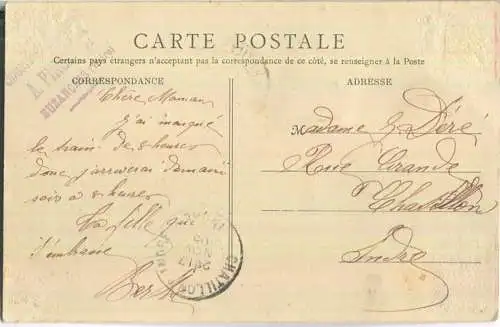 A. P
BUZANÇAIS
CARTE POSTALE
Certains pays étrangers n'acceptant pas la correspondance de ce côté, se renseigner à la Poste
CORRESPONDANCE
Chère Maman
J'ai manqué
le train de 8 heures
donc j'arriverai demain
soir à 8 heures
Ta fille qui
t'embrasse
Berthe
CHATILLON INDRE
ADRESSE
Madame Déré
Rue Grande
Chatillon
Indre